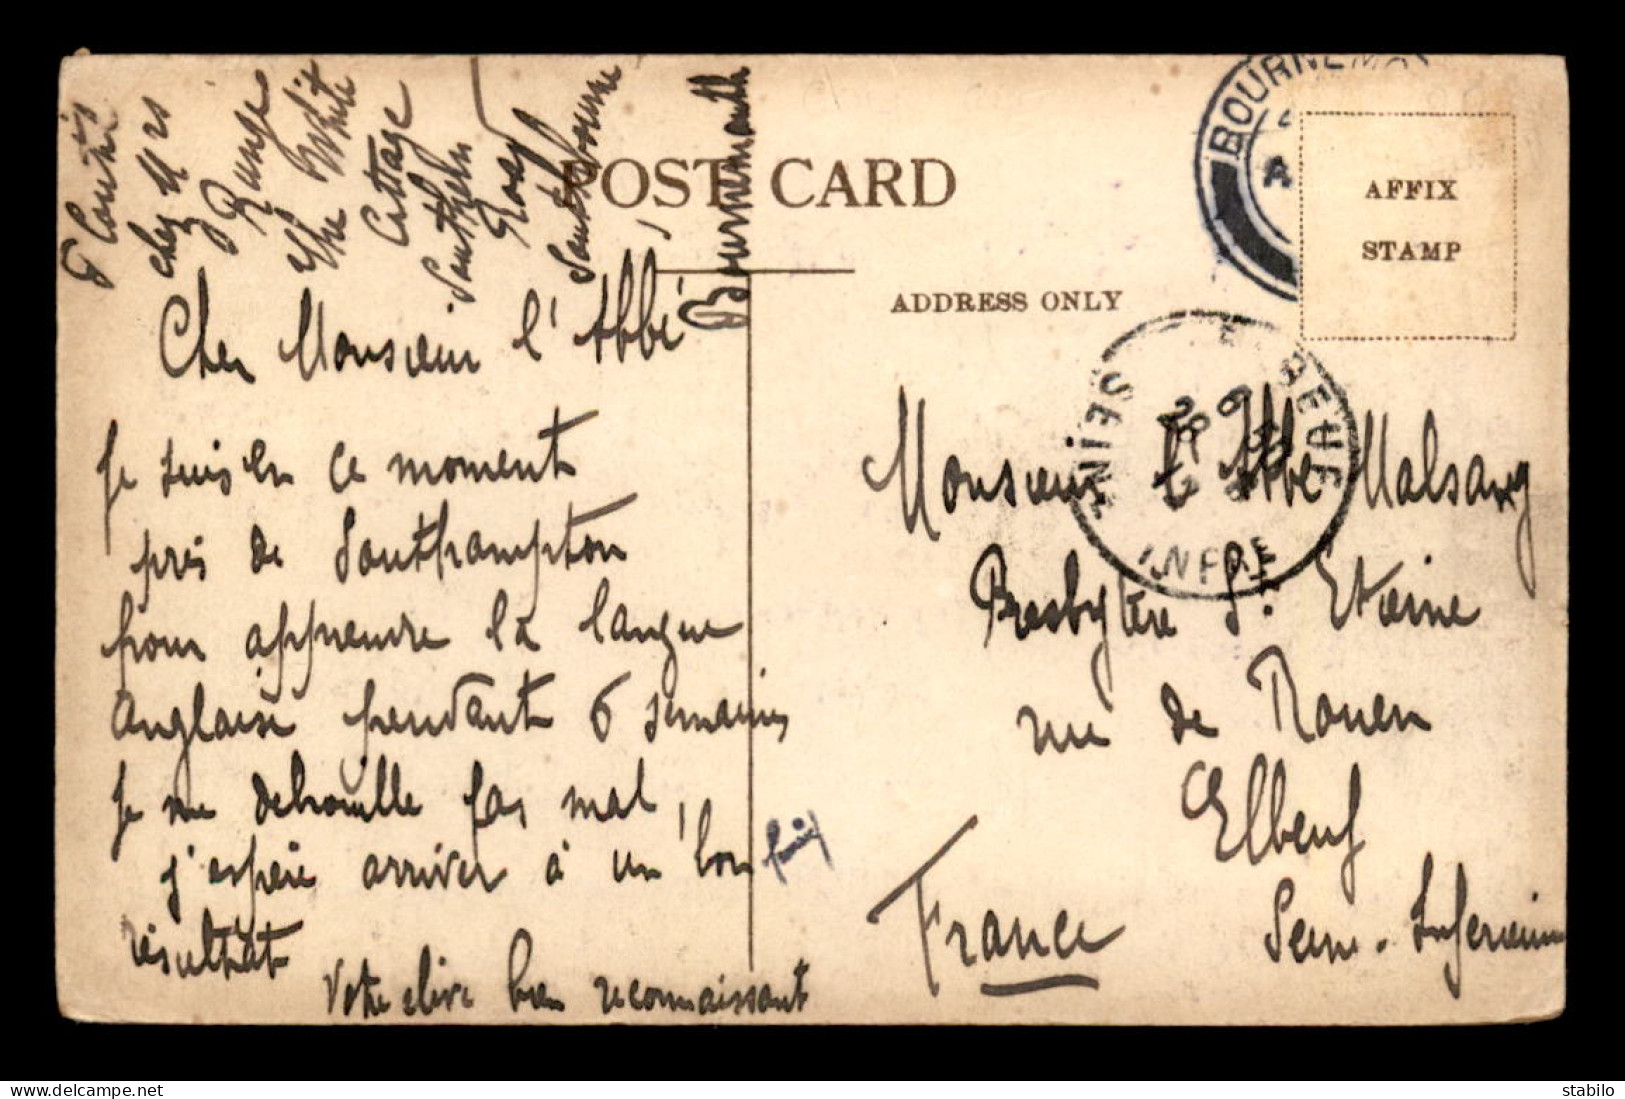 chez Mrs
Runge
the White
Cottage
Southern
Road
Southbourne
Bournemouth
POST CARD
BOURNEMO
AFFIX
STAMP
ADDRESS ONLY
SEINE
INFRE
Cher Monsieur l'Abbé
Je suis en ce moment
près de Southampton
pour apprendre la langue
Anglaise pendant 6 semaines
Je me debrouille pas mal,
j'espère arriver à un bon
résultat
Votre élève bien reconnaissant
Monsieur l'Abbé Malsang
Presbytère St. Etienne
rue de Rouen
Elbeuf
Seine-Inferieure
France
stabilo
www.delcampe.net